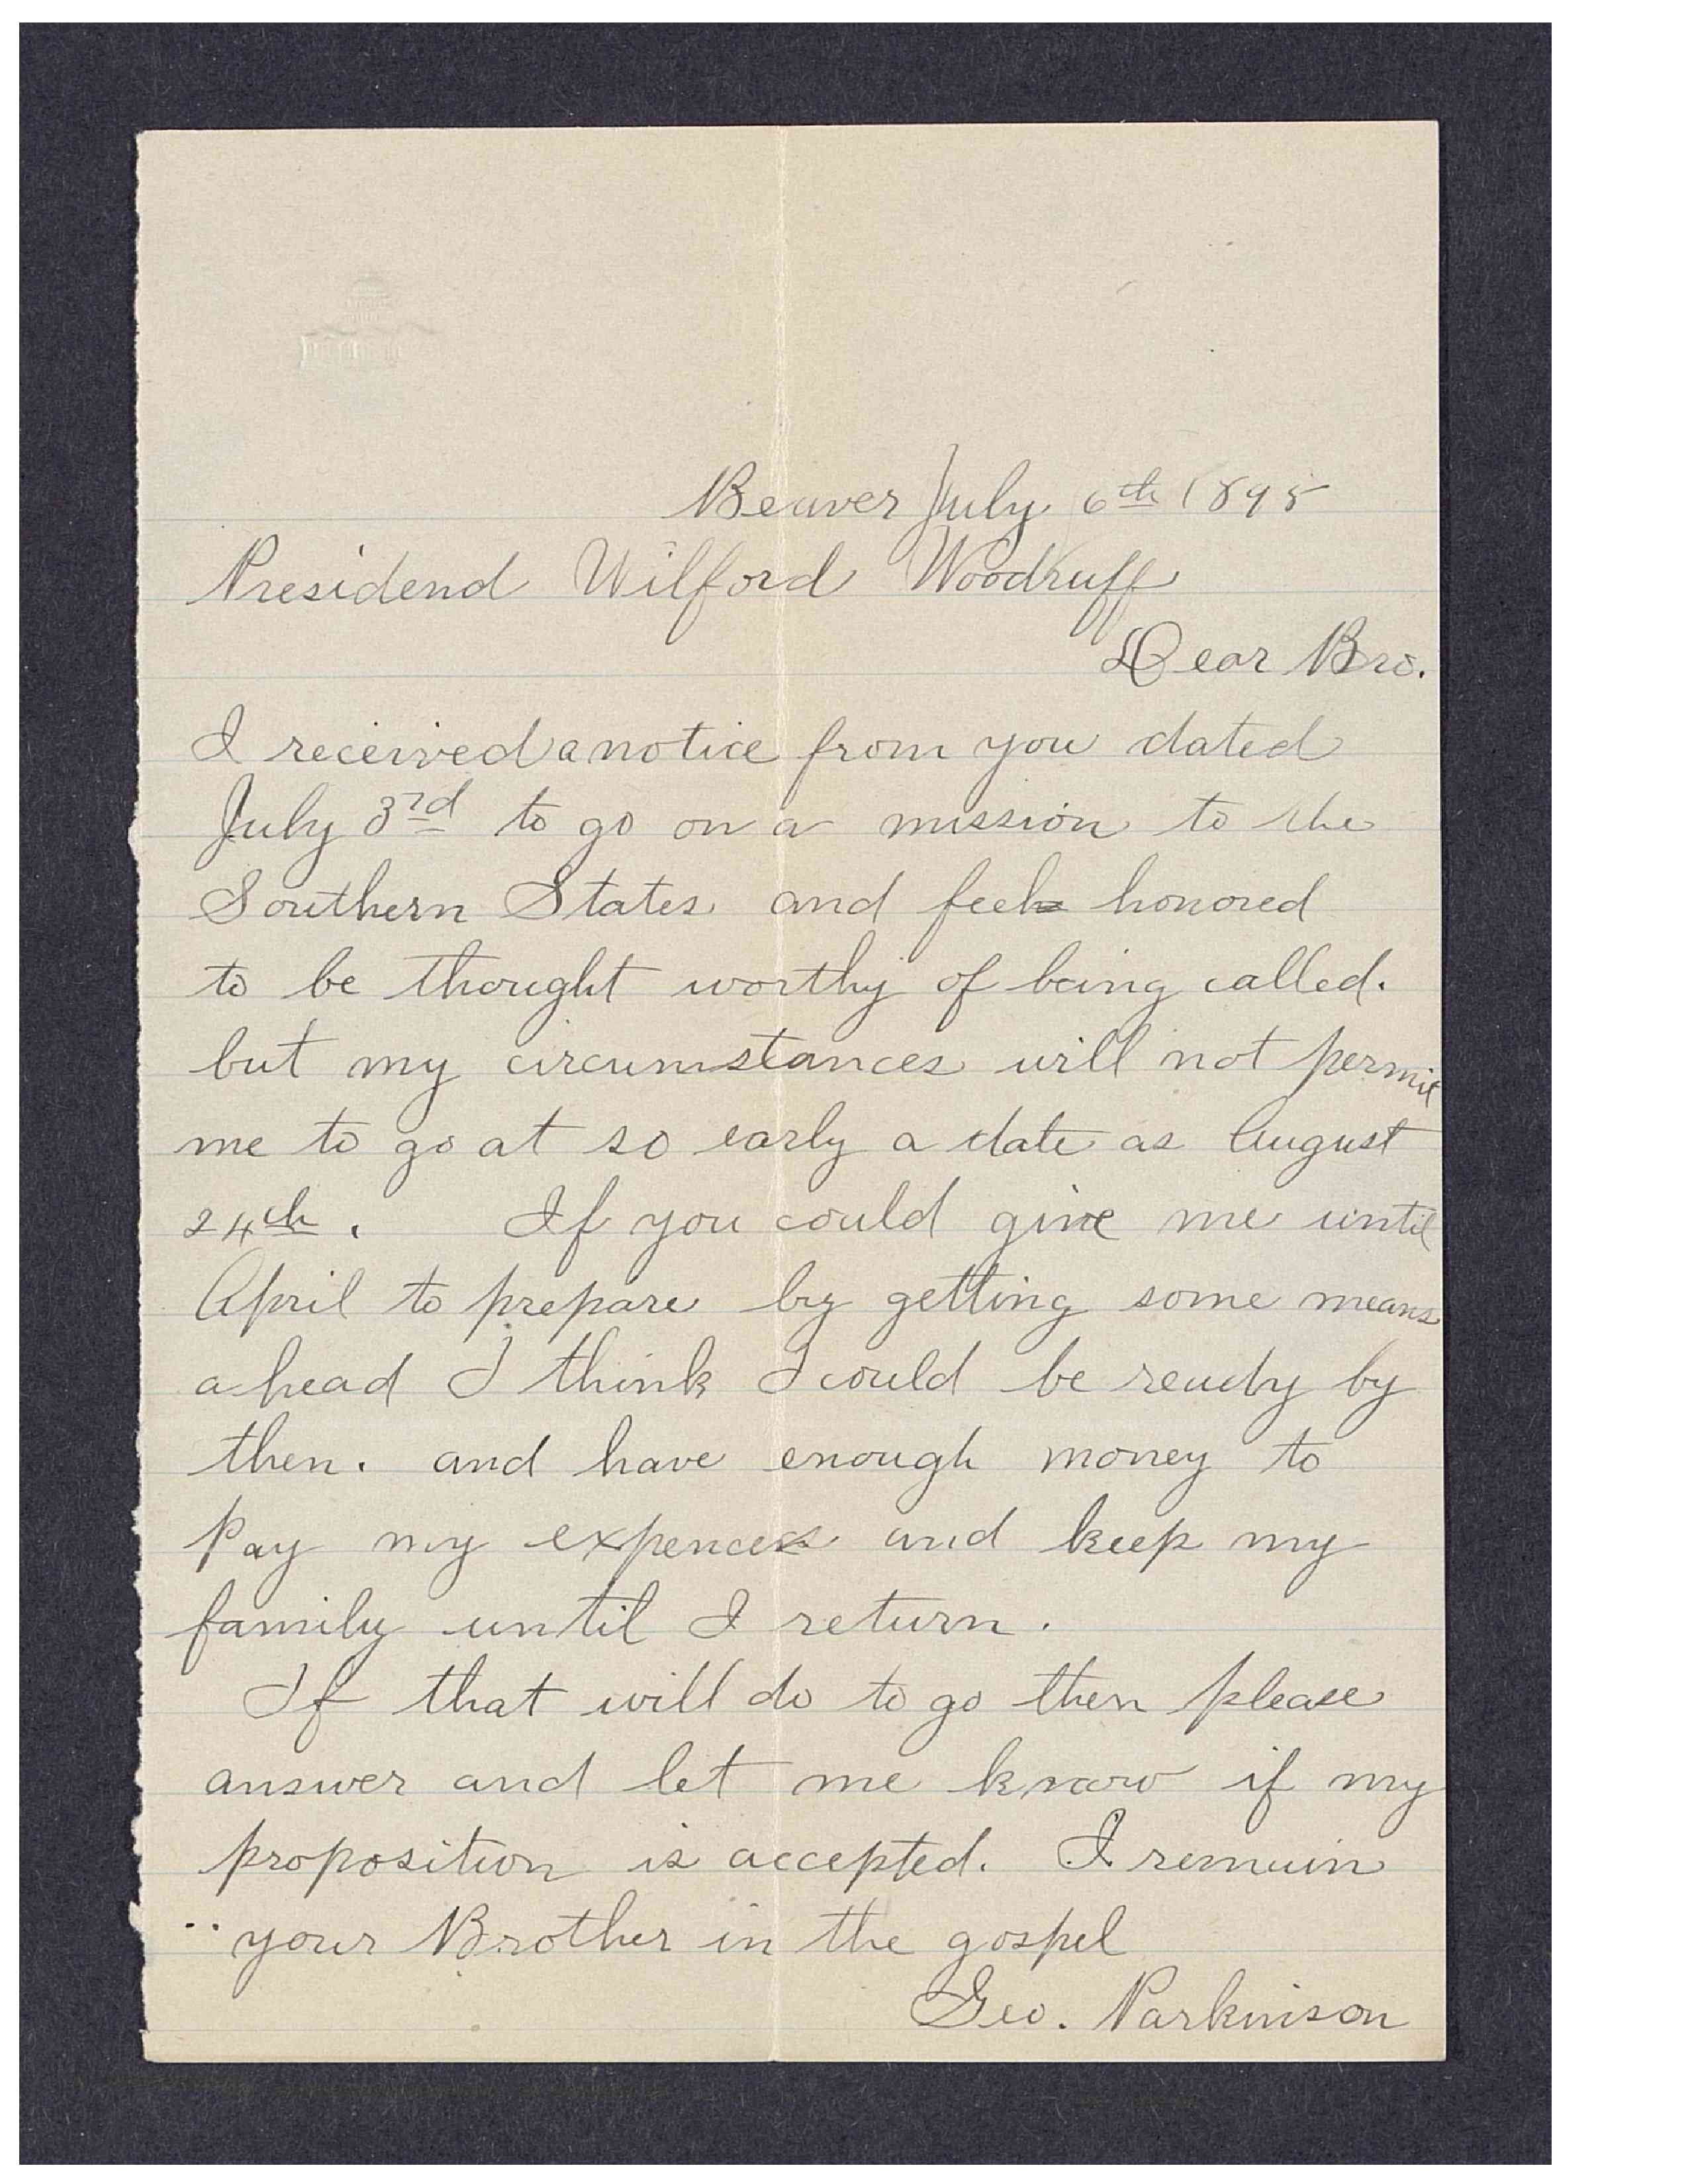 Beaver July 6th 1895
Presidend Wilford Woodruff
Dear Bro.
I received a notice from you dated
July 3rd to go on a mission to the
Southern States and feel honored
to be thought worthy of being called.
but my circumstances will not permit
me to go at so early a date as August
24th. If you could give me until
April to prepare by getting some means
a head I think I could be ready by
then. and have enough money to
Pay my expences and keep my
family until I return.
If that will do to go then please
answer and let me know if my
proposition is accepted. I remain
your Brother in the gospel
Geo. Parkinson